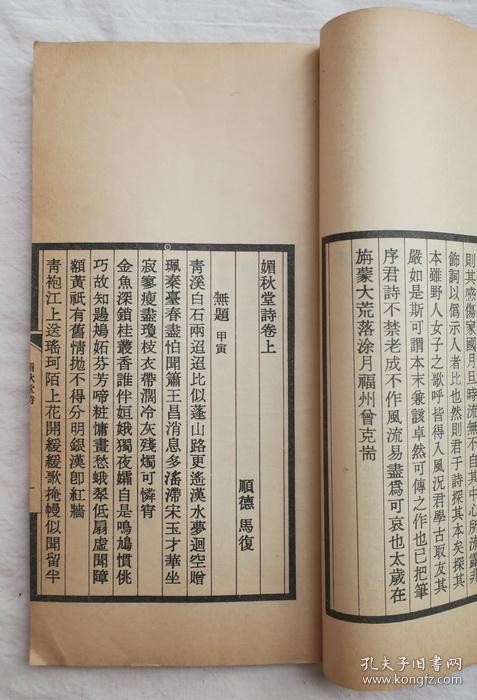 則其感傷家國月旦時流無不自其中心所流露非
飾詞以僞示人者比也然則君子詩探其本矣探其
本雖野人女子之歌呼皆得入風況君學古取友其
嚴如是斯可謂本末兼該卓然可傳之作也已把筆
序君詩不禁老成不作風流易盡爲可哀也太歲在
旃蒙大荒落涂月福州曾克耑
媚秋堂詩卷上
順德 馬復
無題 甲寅
青溪白石兩迢迢比似蓬山路更遙漢水夢迴空贈
珮秦臺春盡怕聞簫王昌消息多濡滯宋玉才華坐
寂寥瘦盡瓊枝衣帶濶冷灰殘燭可憐宵
金魚深鎖桂叢香誰伴姮娥獨夜孀自是鳴鳩慣佻
巧故知趨鳩妬芬芳啼粧慵畫愁蛾翠低扇虛聞障
額黃祇有舊情拋不得分明銀漢卽紅牆
青袍江上送瑤珂陌上花開緩緩歌掩幔似聞留半
媚秋堂詩
一
孔夫子旧书网
www.kongfz.com